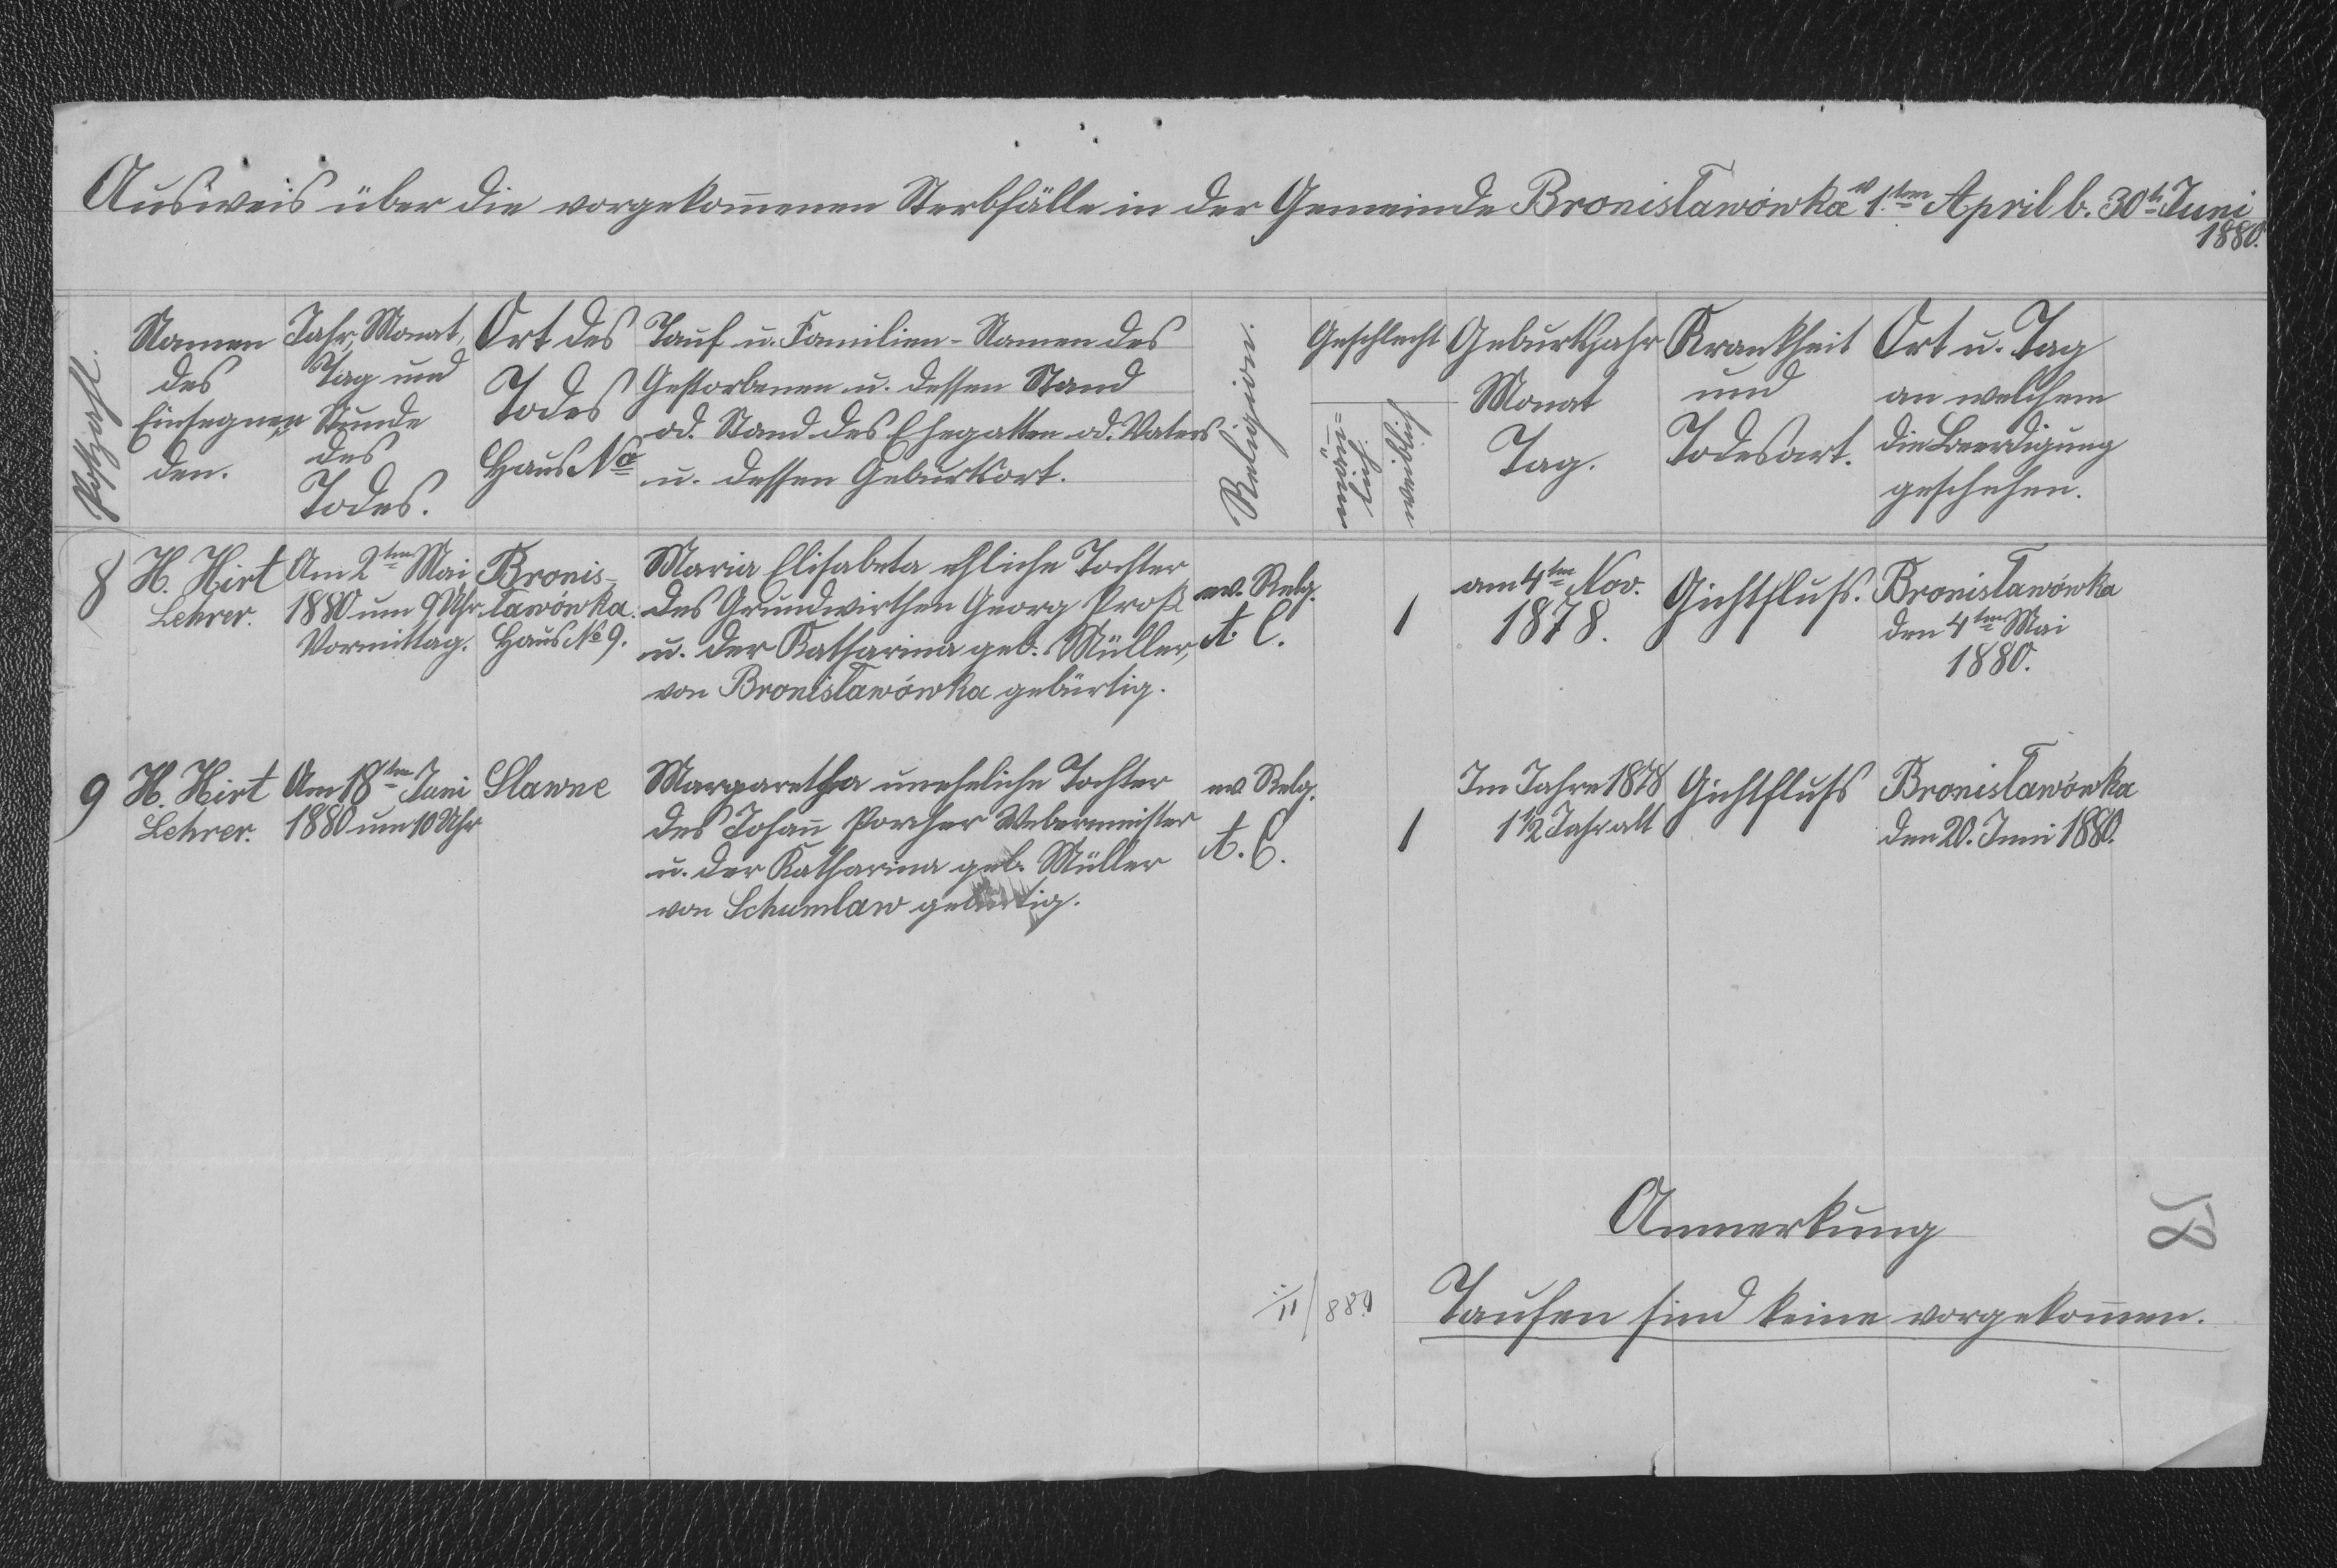 Ausweis über die vorgekom̄enen Sterbfälle in der Gemeinde Bronisławówka v 1.ten April b. 30t Juni
1880.
Postzahl.
Namen
des
Einsegnen„
den.
Jahr, Monat,
Tag und
Stunde
des
Todes.
Ort des
Todes
Haus No
Tauf u. Familien-Namen des
Gestorbenen u. dessen Stand
od. Stand des Ehegatten od. Vaters
u. dessen Geburtsort.
Religion.
Geschlecht
män̄=
lich
weiblich
Geburtsjahr
Monat
Tag.
Krankheit
und
Todesart.
Ort u. Tag
an welchem
die Beerdigung
geschehen.
8
H. Hirt
Lehrer.
Am 2ten Mai
1880 um 9 Uhr
Vormittag.
Bronis-
ławówka.
Haus No 9.
Maria Elisabeta ehliche Tochter
des Grundwirthen Georg Proß
u. der Katharina geb. Müller,
von Bronisławówka gebürtig.
ev. Relg.
A. C.
1
am 4ten Nov.
1878.
Gichtfluß.
Bronisławówka
den 4ten Mai
1880.
9
H. Hirt
Lehrer.
Am 18ten Juni
1880 um 10 Uhr
Slawne
Margaretha uneheliche Tochter
des Johan̄ Webermeister
u. der Katharina geb. Müller
von Schumlaw gebürtig.
ev. Relg.
A. C.
1
Im Jahre 1878
1 1/2 Jahr alt
Gichtfluß
Bronisławówka
den 20. Juni 1880.
Anmerkung
Taufen sind keine vorgekom̄en.
58